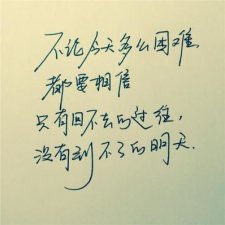 不论今天多么困难,
都要相信
只有回不去的过往,
没有到不了的明天.